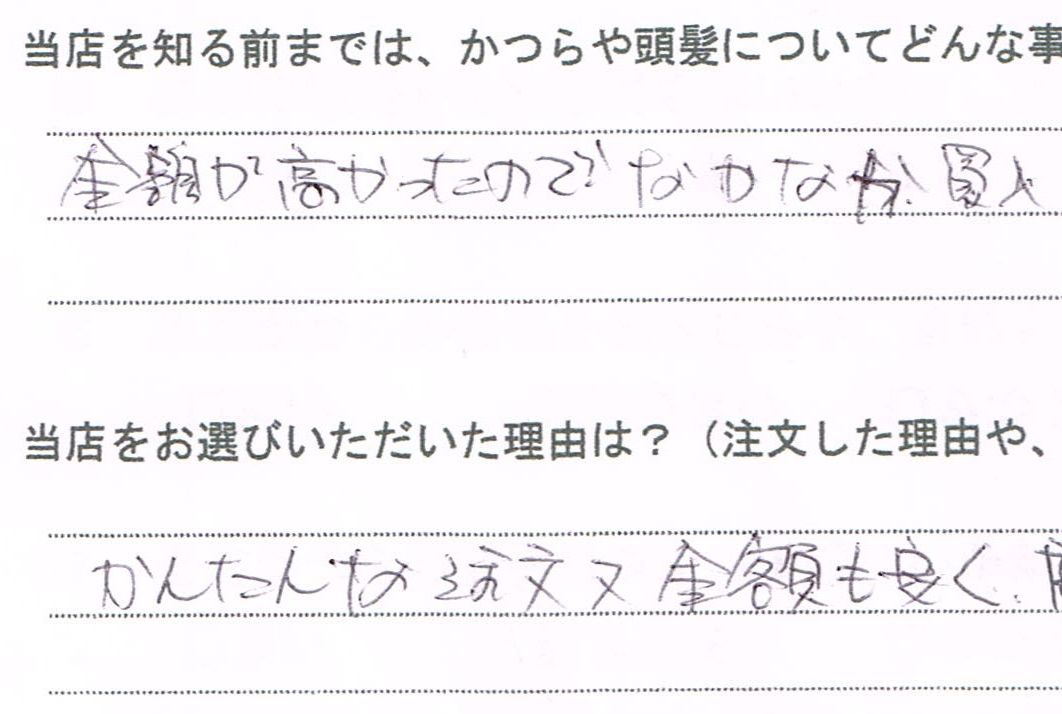 当店を知る前までは、かつらや頭髪についてどんな事
金額が高かったのでなかなか買入
当店をお選びいただいた理由は？（注文した理由や、
かんたんな注文又金額も安く、